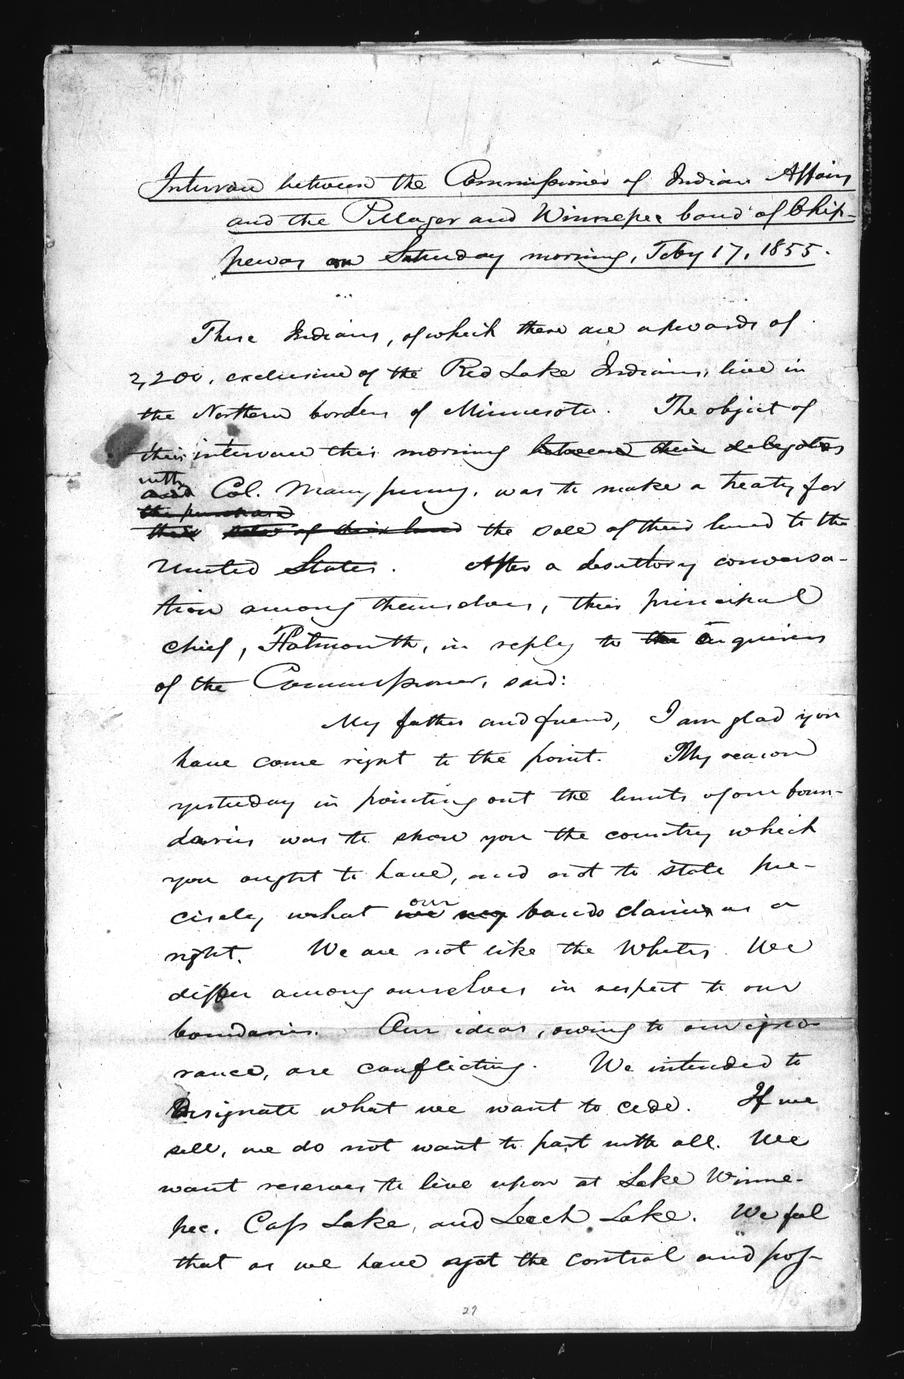 Interview between the Commissioner of Indian Affairs
and the Pillager and Winnepec band of Chip-
pewas on Saturday morning, Feby 17, 1855.
These Indians, of which there are upwards of
2,200, exclusive of the Red Lake Indians, live in
the Northern borders of Minnesota. The object of
their interview this morning between their delegates
with
and Col. Manypenny, was to make a treaty for
the purchase
their sales of their land the sale of their land to the
United States. After a desultory conversa-
tion among themselves, their principal
chief, Flatmouth, in reply to the enquiries
of the Commissioner, said:
My father and friend, I am glad you
have come right to the point. My reason
yesterday in pointing out the limits of our boun-
daries was to show you the country which
you ought to have, and not to state pre-
our
cisely what we my bands claims as a
right. We are not like the Whites. We
differ among ourselves in respect to our
boundaries. Our ideas, owing to our igno-
rance, are conflicting. We intended to
designate what we want to cede. If we
sell, we do not want to part with all. We
want reserves to live upon at Lake Winne-
pec, Cass Lake, and Leech Lake. We feel
that as we have got the control and pos-
27